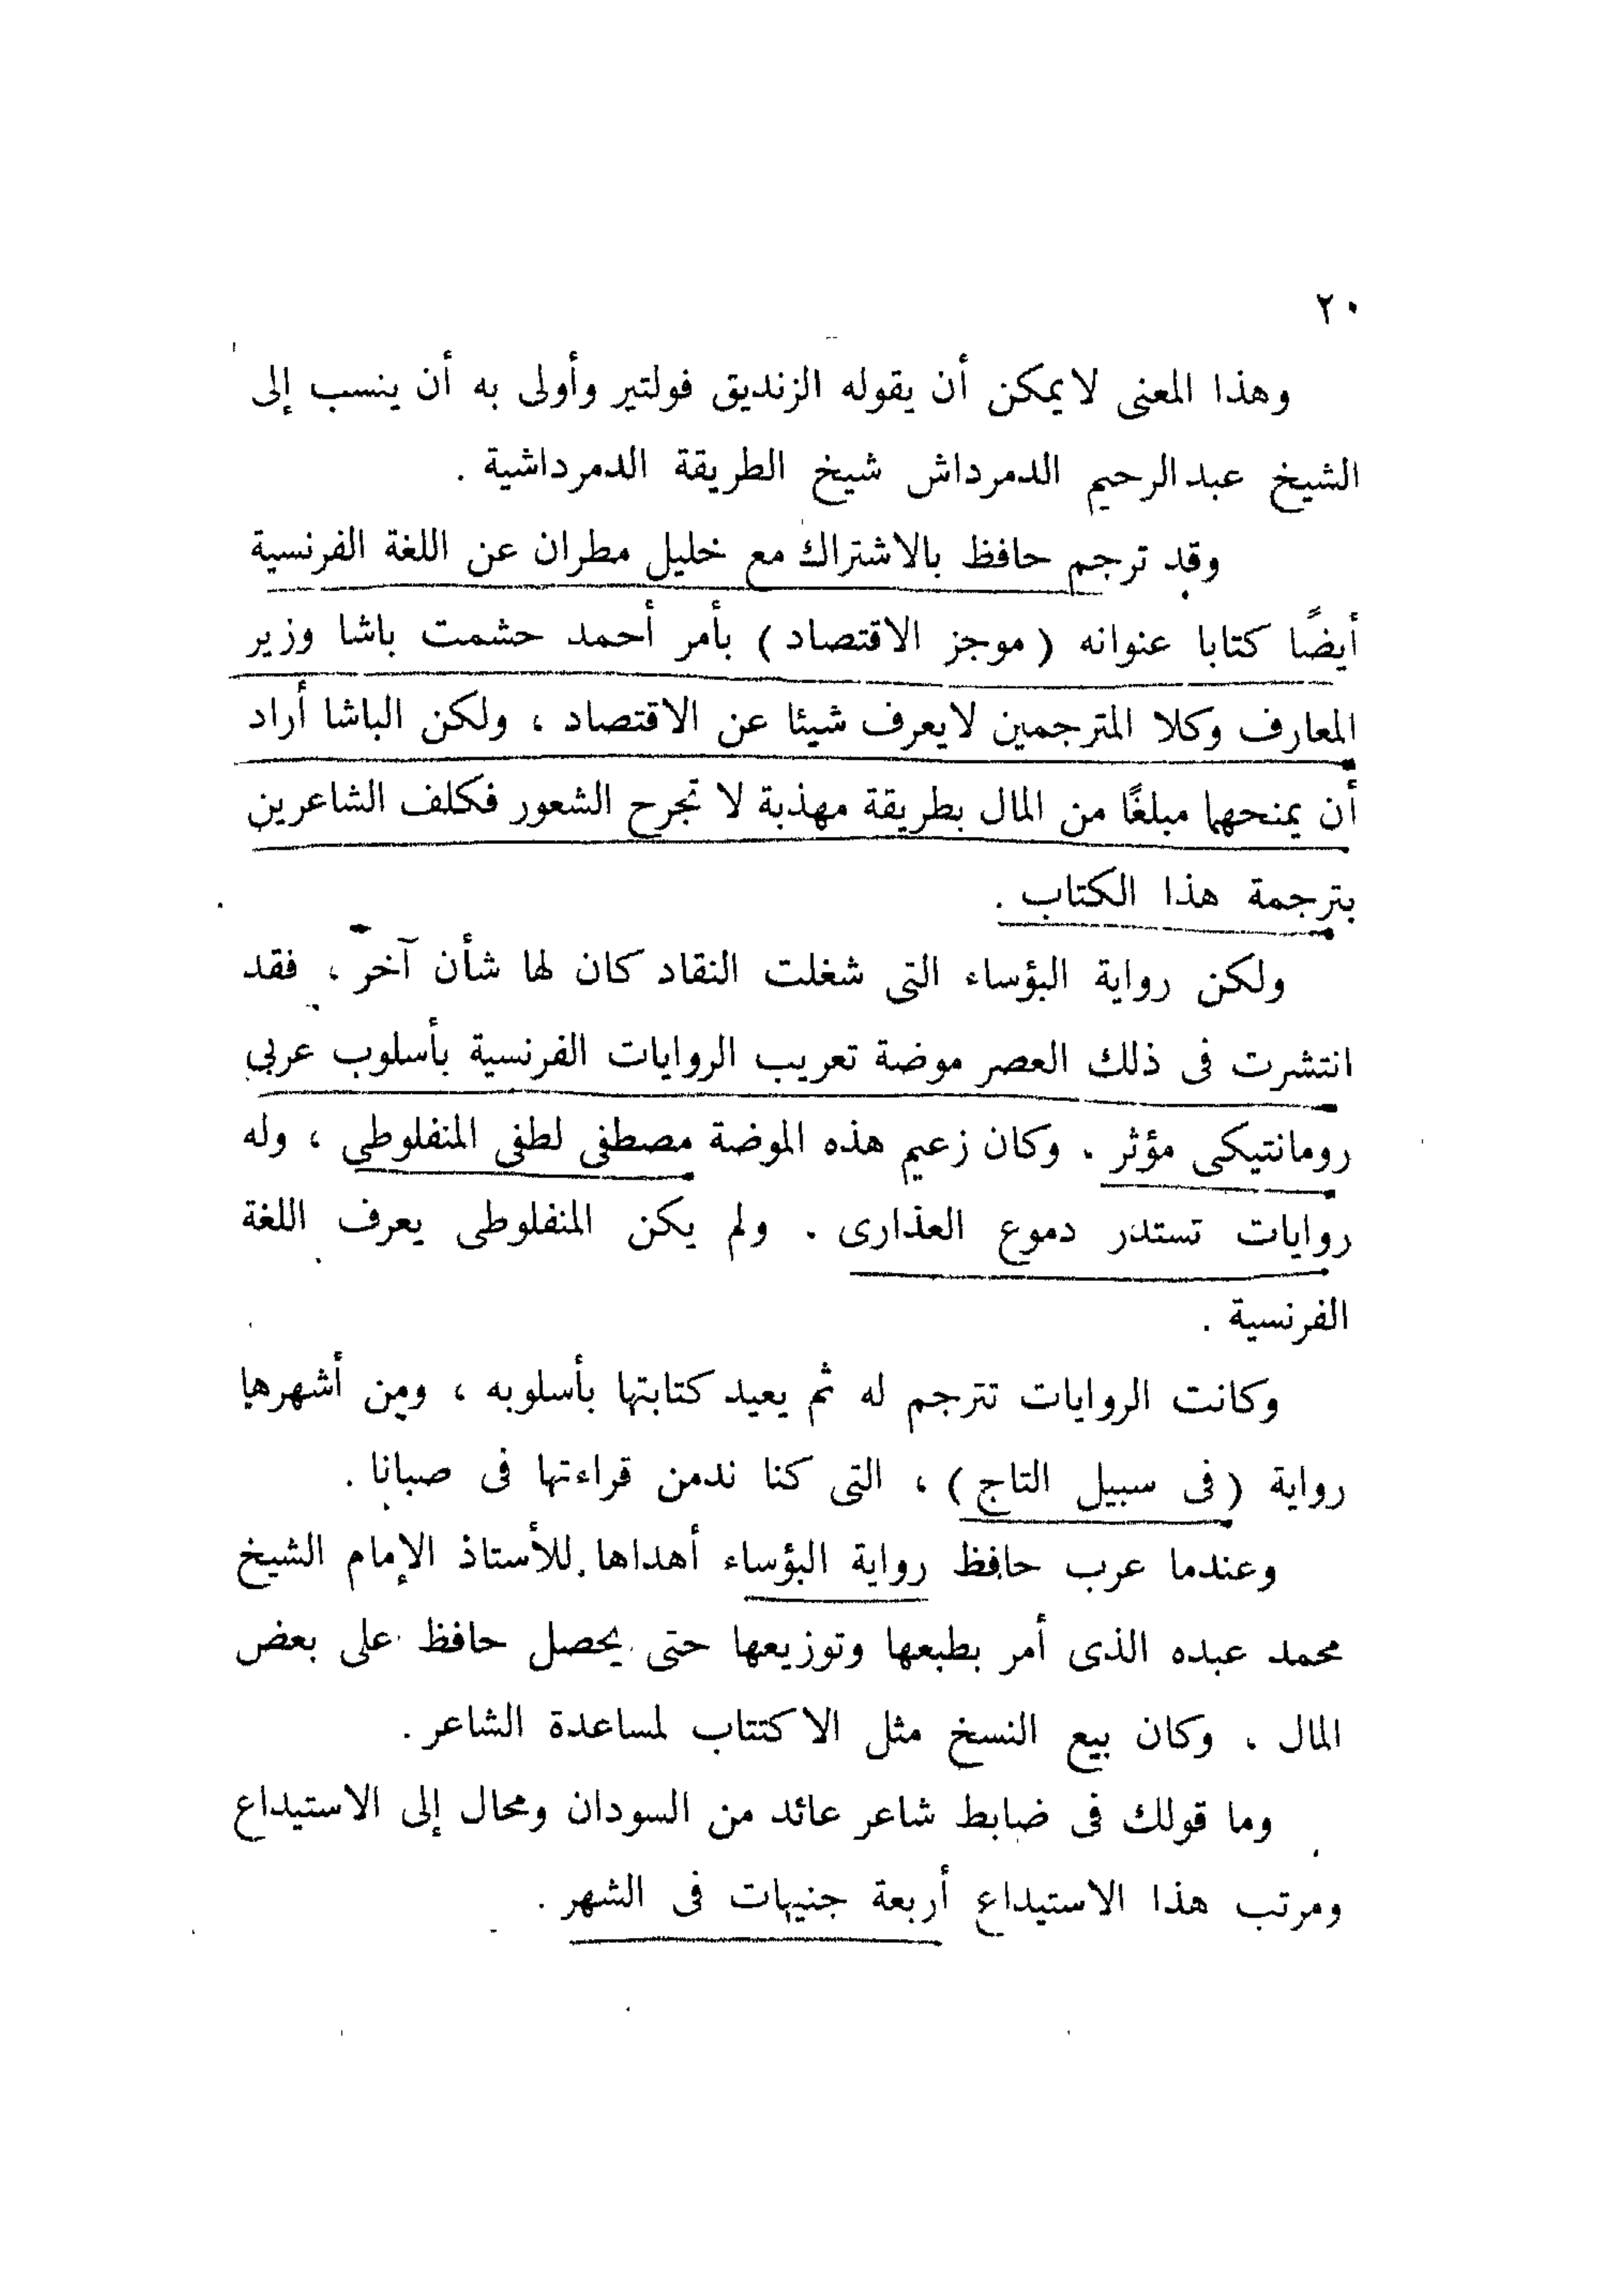 ٢٠
وهذا المعنى لا يمكن أن يقوله الزنديق فولتير وأولى به أن ينسب إلى
الشيخ عبد الرحيم الدمرداش شيخ الطريقة الدمرداشية .
وقد ترجم حافظ بالاشتراك مع خليل مطران عن اللغة الفرنسية
أيضًا كتابا عنوانه ( موجز الاقتصاد ) بأمر أحمد حشمت باشا وزير
المعارف وكلا المترجمين لا يعرف شيئا عن الاقتصاد ، ولكن الباشا أراد
أن يمنحهما مبلغًا من المال بطريقة مهذبة لا تجرح الشعور فكلف الشاعرين
بترجمة هذا الكتاب .
ولكن رواية البؤساء التى شغلت النقاد كان لها شأن آخر ، فقد
انتشرت فى ذلك العصر موضة تعريب الروايات الفرنسية بأسلوب عربى
رومانتيكى مؤثر . وكان زعيم هذه الموضة مصطفى لطفى المنفلوطى ، وله
روايات تستدر دموع العذارى . ولم يكن المنفلوطى يعرف اللغة
الفرنسية .
وكانت الروايات تترجم له ثم يعيد كتابتها بأسلوبه ، ومن أشهرها
رواية ( فى سبيل التاج ) ، التى كنا ندمن قراءتها فى صبانا .
وعندما عرب حافظ رواية البؤساء أهداها للأستاذ الإمام الشيخ
محمد عبده الذى أمر بطبعها وتوزيعها حتى يحصل حافظ على بعض
المال ، وكان بيع النسخ مثل الاكتتاب لمساعدة الشاعر .
وما قولك فى ضابط شاعر عائد من السودان ومحال إلى الاستيداع
ومرتب هذا الاستيداع أربعة جنيهات فى الشهر .